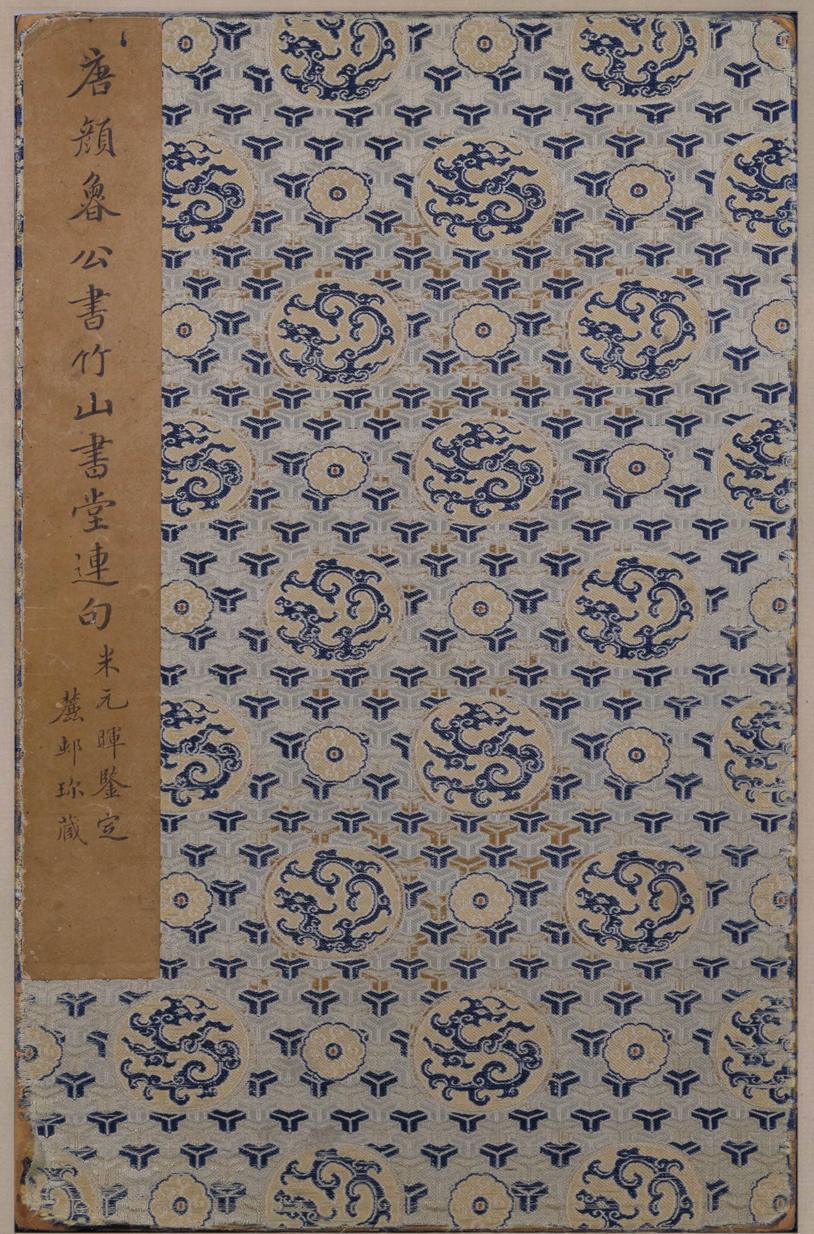 唐顏魯公書竹山書堂連句
米元暉鑒定
蕉邨珎藏